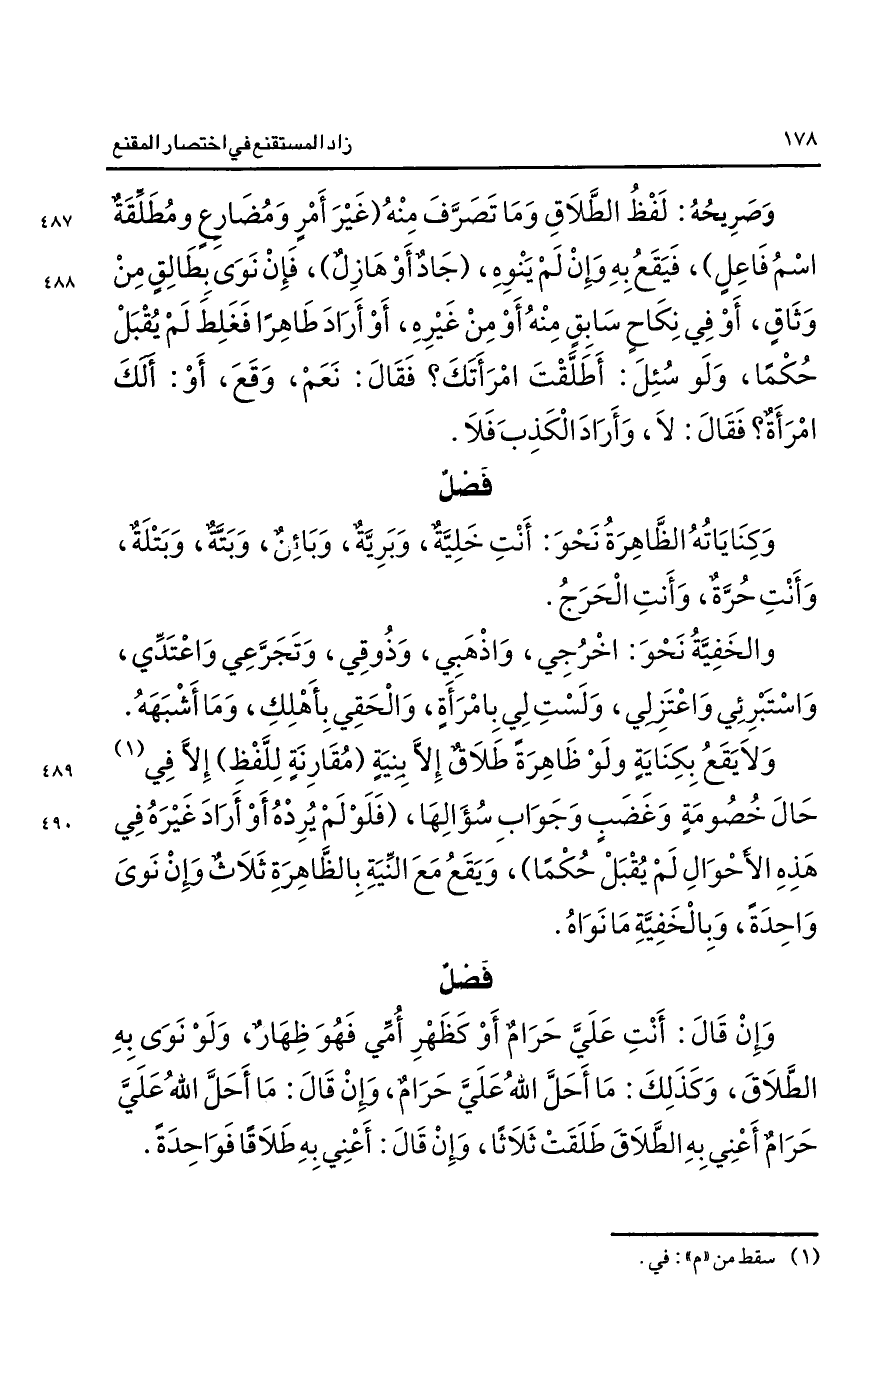 ١٧٨
زاد المستقنع في اختصار المقنع
وَصَرِيحُهُ: لَفْظُ الطَّلَاقِ وَمَا تَصَرَّفَ مِنْهُ (غَيْرَ أَمْرٍ وَمُضَارِعٍ ومُطَلِّقَةٌ ٤٨٧
اسْمُ فَاعِلٍ)، فَيَقَعُ بِهِ وَإِنْ لَمْ يَنْوِهِ، (جَادٌ أَوْ هَازِلٌ)، فَإِنْ نَوَى بِطَالِقٍ مِنْ ٤٨٨
وَثَاقٍ، أَوْ فِي نِكَاحٍ سَابِقٍ مِنْهُ أَوْ مِنْ غَيْرِهِ، أَوْ أَرَادَ طَاهِرًا فَغَلِطَ لَمْ يُقْبَلْ
حُكْمًا، وَلَو سُئِلَ: أَطَلَّقْتَ امْرَأَتَكَ؟ فَقَالَ: نَعَمْ، وَقَعَ، أَوْ: أَلَكَ
امْرَأَةٌ؟ فَقَالَ: لاَ، وَأَرَادَ الْكَذِبَ فَلاَ.
فَصْلٌ
وَكِنَايَاتُهُ الظَّاهِرَةُ نَحْوَ: أَنْتِ خَلِيَّةٌ، وَبَرِيَّةٌ، وَبَائِنٌ، وَبَتَّةٌ، وَبَتْلَةٌ،
وَأَنْتِ حُرَّةٌ، وَأَنتِ الْحَرَجُ.
والخَفِيَّةُ نَحْوَ: اخْرُجِي، وَاذْهَبِي، وَذُوقِي، وَتَجَرَّعِي وَاعْتَدِّي،
وَاسْتَبْرِئِي وَاعْتَزِلِي، وَلَسْتِ لِي بِامْرَأَةٍ، وَالْحَقِي بِأَهْلِكِ، وَمَا أَشْبَهَهُ.
وَلاَ يَقَعُ بِكِنَايَةٍ ولَوْ ظَاهِرَةً طَلَاقٌ إِلاَّ بِنِيَةٍ (مُقَارِنَةٍ لِلَّفْظِ) إِلاَّ فِي(١) ٤٨٩
حَالَ خُصُومَةٍ وَغَضَبٍ وَجَوَابِ سُؤَالِهَا، (فَلَوْ لَمْ يُرِدْهُ أَوْ أَرَادَ غَيْرَهُ فِي ٤٩٠
هَذِهِ الأَحْوَالِ لَمْ يُقْبَلْ حُكْمًا)، وَيَقَعُ مَعَ النِّيَةِ بِالظَّاهِرَةِ ثَلَاثٌ وَإِنْ نَوَىَ
وَاحِدَةً، وَبِالْخَفِيَّةِ مَا نَوَاهُ.
فَصْلٌ
وَإِنْ قَالَ: أَنْتِ عَلَيَّ حَرَامٌ أَوْ كَظَهْرِ أُمِّي فَهُوَ ظِهَارٌ، وَلَوْ نَوَى بِهِ
الطَّلَاقَ، وَكَذَلِكَ: مَا أَحَلَّ اللهُ عَلَيَّ حَرَامٌ، وَإِنْ قَالَ: مَا أَحَلَّ اللهُ عَلَيَّ
حَرَامٌ أَعْنِي بِهِ الطَّلَاقَ طَلَقَتْ ثَلَاثًا، وَإِنْ قَالَ: أَعْنِي بِهِ طَلَاقًا فَوَاحِدَةً.
(١) سقط من «م»: في.